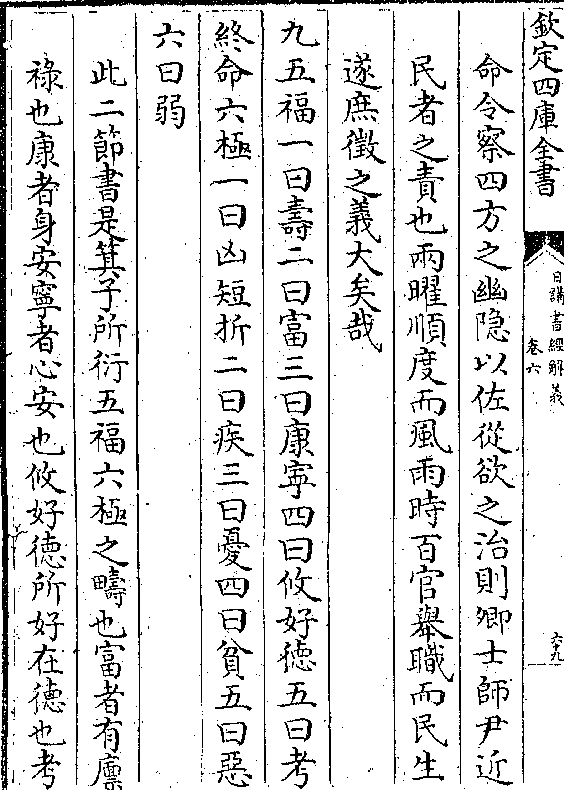 欽定四庫全書
日講書經解義
卷六
六十九
命令察四方之幽隐以佐從欲之治則卿士師尹近
民者之責也兩曜順度而風雨時百官舉職而民生
遂庶徵之義大矣哉
九五福一曰壽二曰富三曰康寜四曰攸好徳五曰考
終命六極一曰凶短折二曰疾三曰憂四曰貧五曰惡
六曰弱
此二節書是箕子所衍五福六極之疇也富者有廪
禄也康者身安寜者心安也攸好德所好在德也考